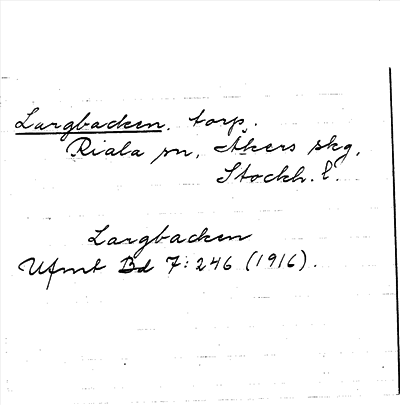 Largbacken. torp.
Riala sn, Åkers skg,
Stockh. l.
Largbacken
Ufmt Bd 7:246 (1916).